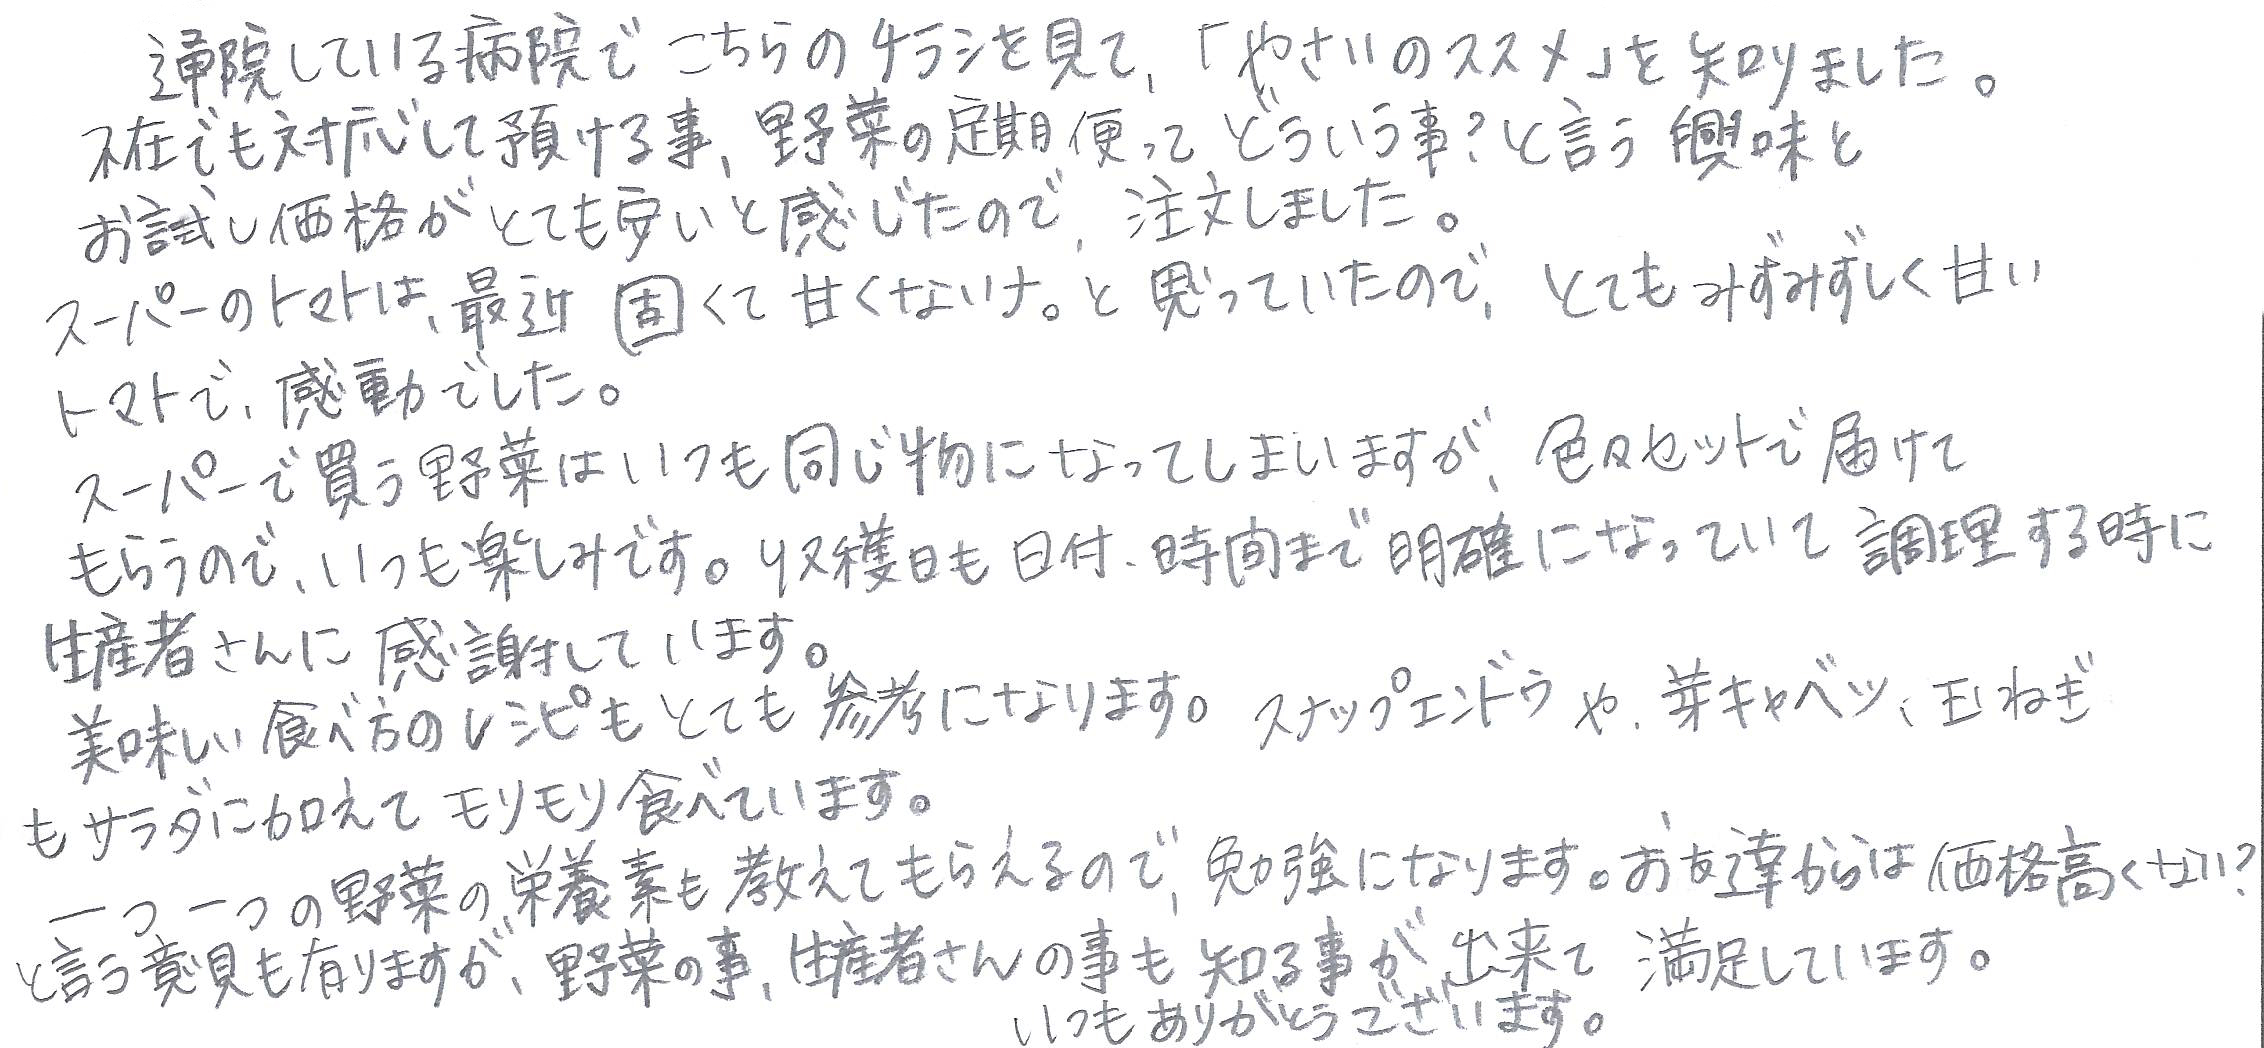 通院している病院でこちらのチラシを見て、「やさいのススメ」を知りました。
不在でも対応して預ける事、野菜の定期便ってどういう事?と言う興味と
お試し価格がとても安いと感じたので、注文しました。
スーパーのトマトは、最近固くて甘くないナ。と思っていたので、とてもみずみずしく甘い
トマトで、感動でした。
スーパーで買う野菜はいつも同じ物になってしまいますが、色々セットで届けて
もらうので、いつも楽しみです。収穫日も日付、時間まで明確になっていて調理する時に
生産者さんに感謝しています。
美味しい食べ方のレシピもとても参考になります。スナップエンドウや、芽キャベツ、玉ねぎ
もサラダに加えてモリモリ食べています。
一つ一つの野菜の栄養素も教えてもらえるので、勉強になります。お友達からは価格高くない?
と言う意見も有りますが、野菜の事、生産者さんの事も知る事が出来て満足しています。
いつもありがとうございます。